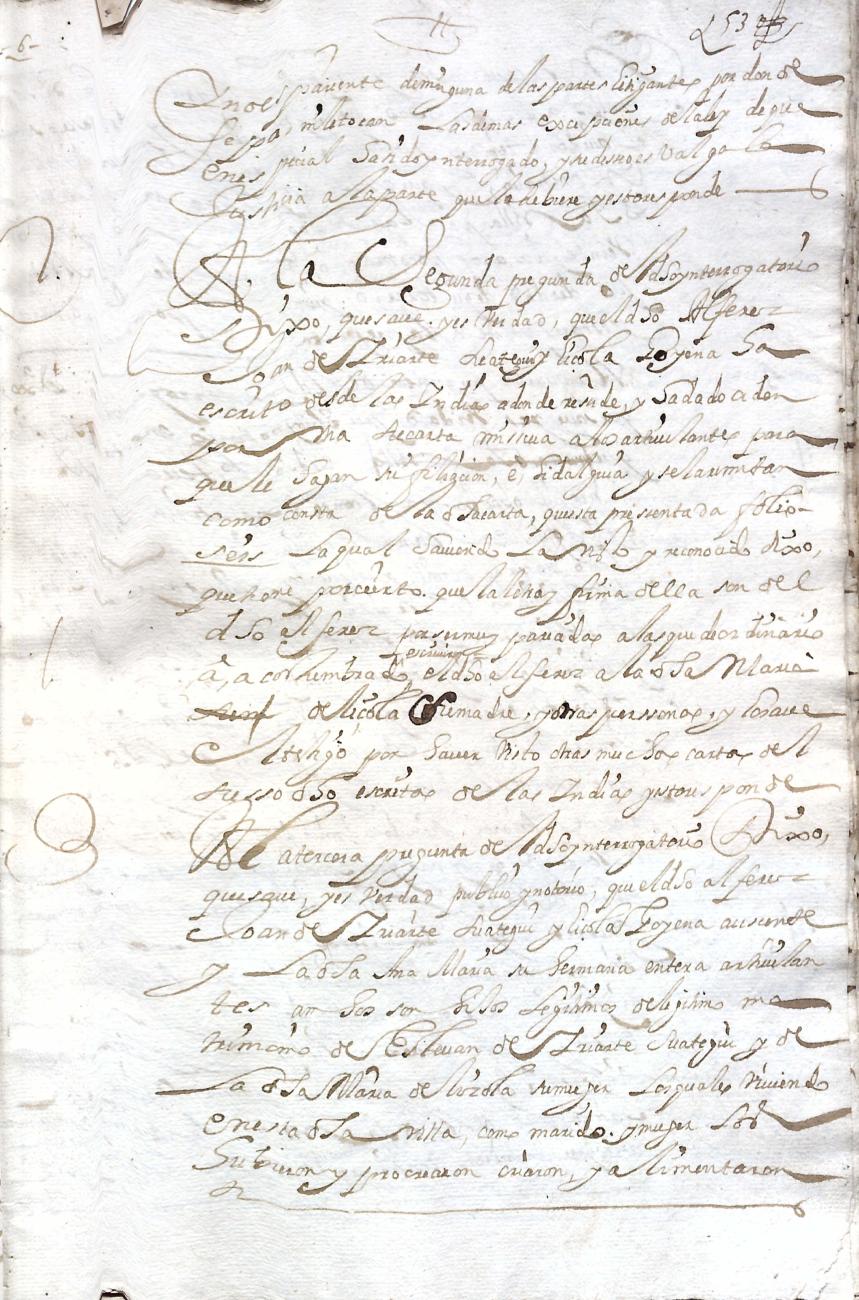 11
53
6
y no es pariente de ninguna de las partes litigantes por donde
se pa, ni le tocan las demas excepciones de la ley de que
en especial ha sido ynterrogado, y
justicia a la parte que la debiere y esto responde
2.
A la Segunda pregunda del dho ynterrogatorio
Dixo, que save, y es verdad, que el dho Alferez
Joan de Yriarte y licola Goyena ha
escrito desde las Indias adonde reside, y ha dado orden
por Una de carta missiva a los articulantes para
que le hagan su filiacion, e, hidalguia y se la rimitan
como consta de la dha carta, questa pressentada folio
seis la qual haviendo La visto y reconocido dixo,
que tiene por cierto que la letra y firma della son del
dho alferez por ser muy parecidas a las que de ordinario
a, acostumbrado escriuir el dho alferez a la dha Maria
de licola su madre, y otras perssonas, y lo save
el testigo por haver visto otras muchas cartas del
suso dho escritas de las Indias y esto responde
3
A la tercera pregunta del dho ynterrogatorio Dixo,
que save, y es verdad publico y notorio, que el dho alferez
Joan de Yriarte Suategui y licola Goyena aussente
y La dha Ana Maria su hermana entera articulan
tes ambos son hijos legitimos de legitimo ma
trimonio de Estevan de Yriarte Suategui y de
La dha Maria de licola su muger Los quales viviendo
en esta dha villa, como marido y muger los
hubieron y procrearon criaron, y alimentaron